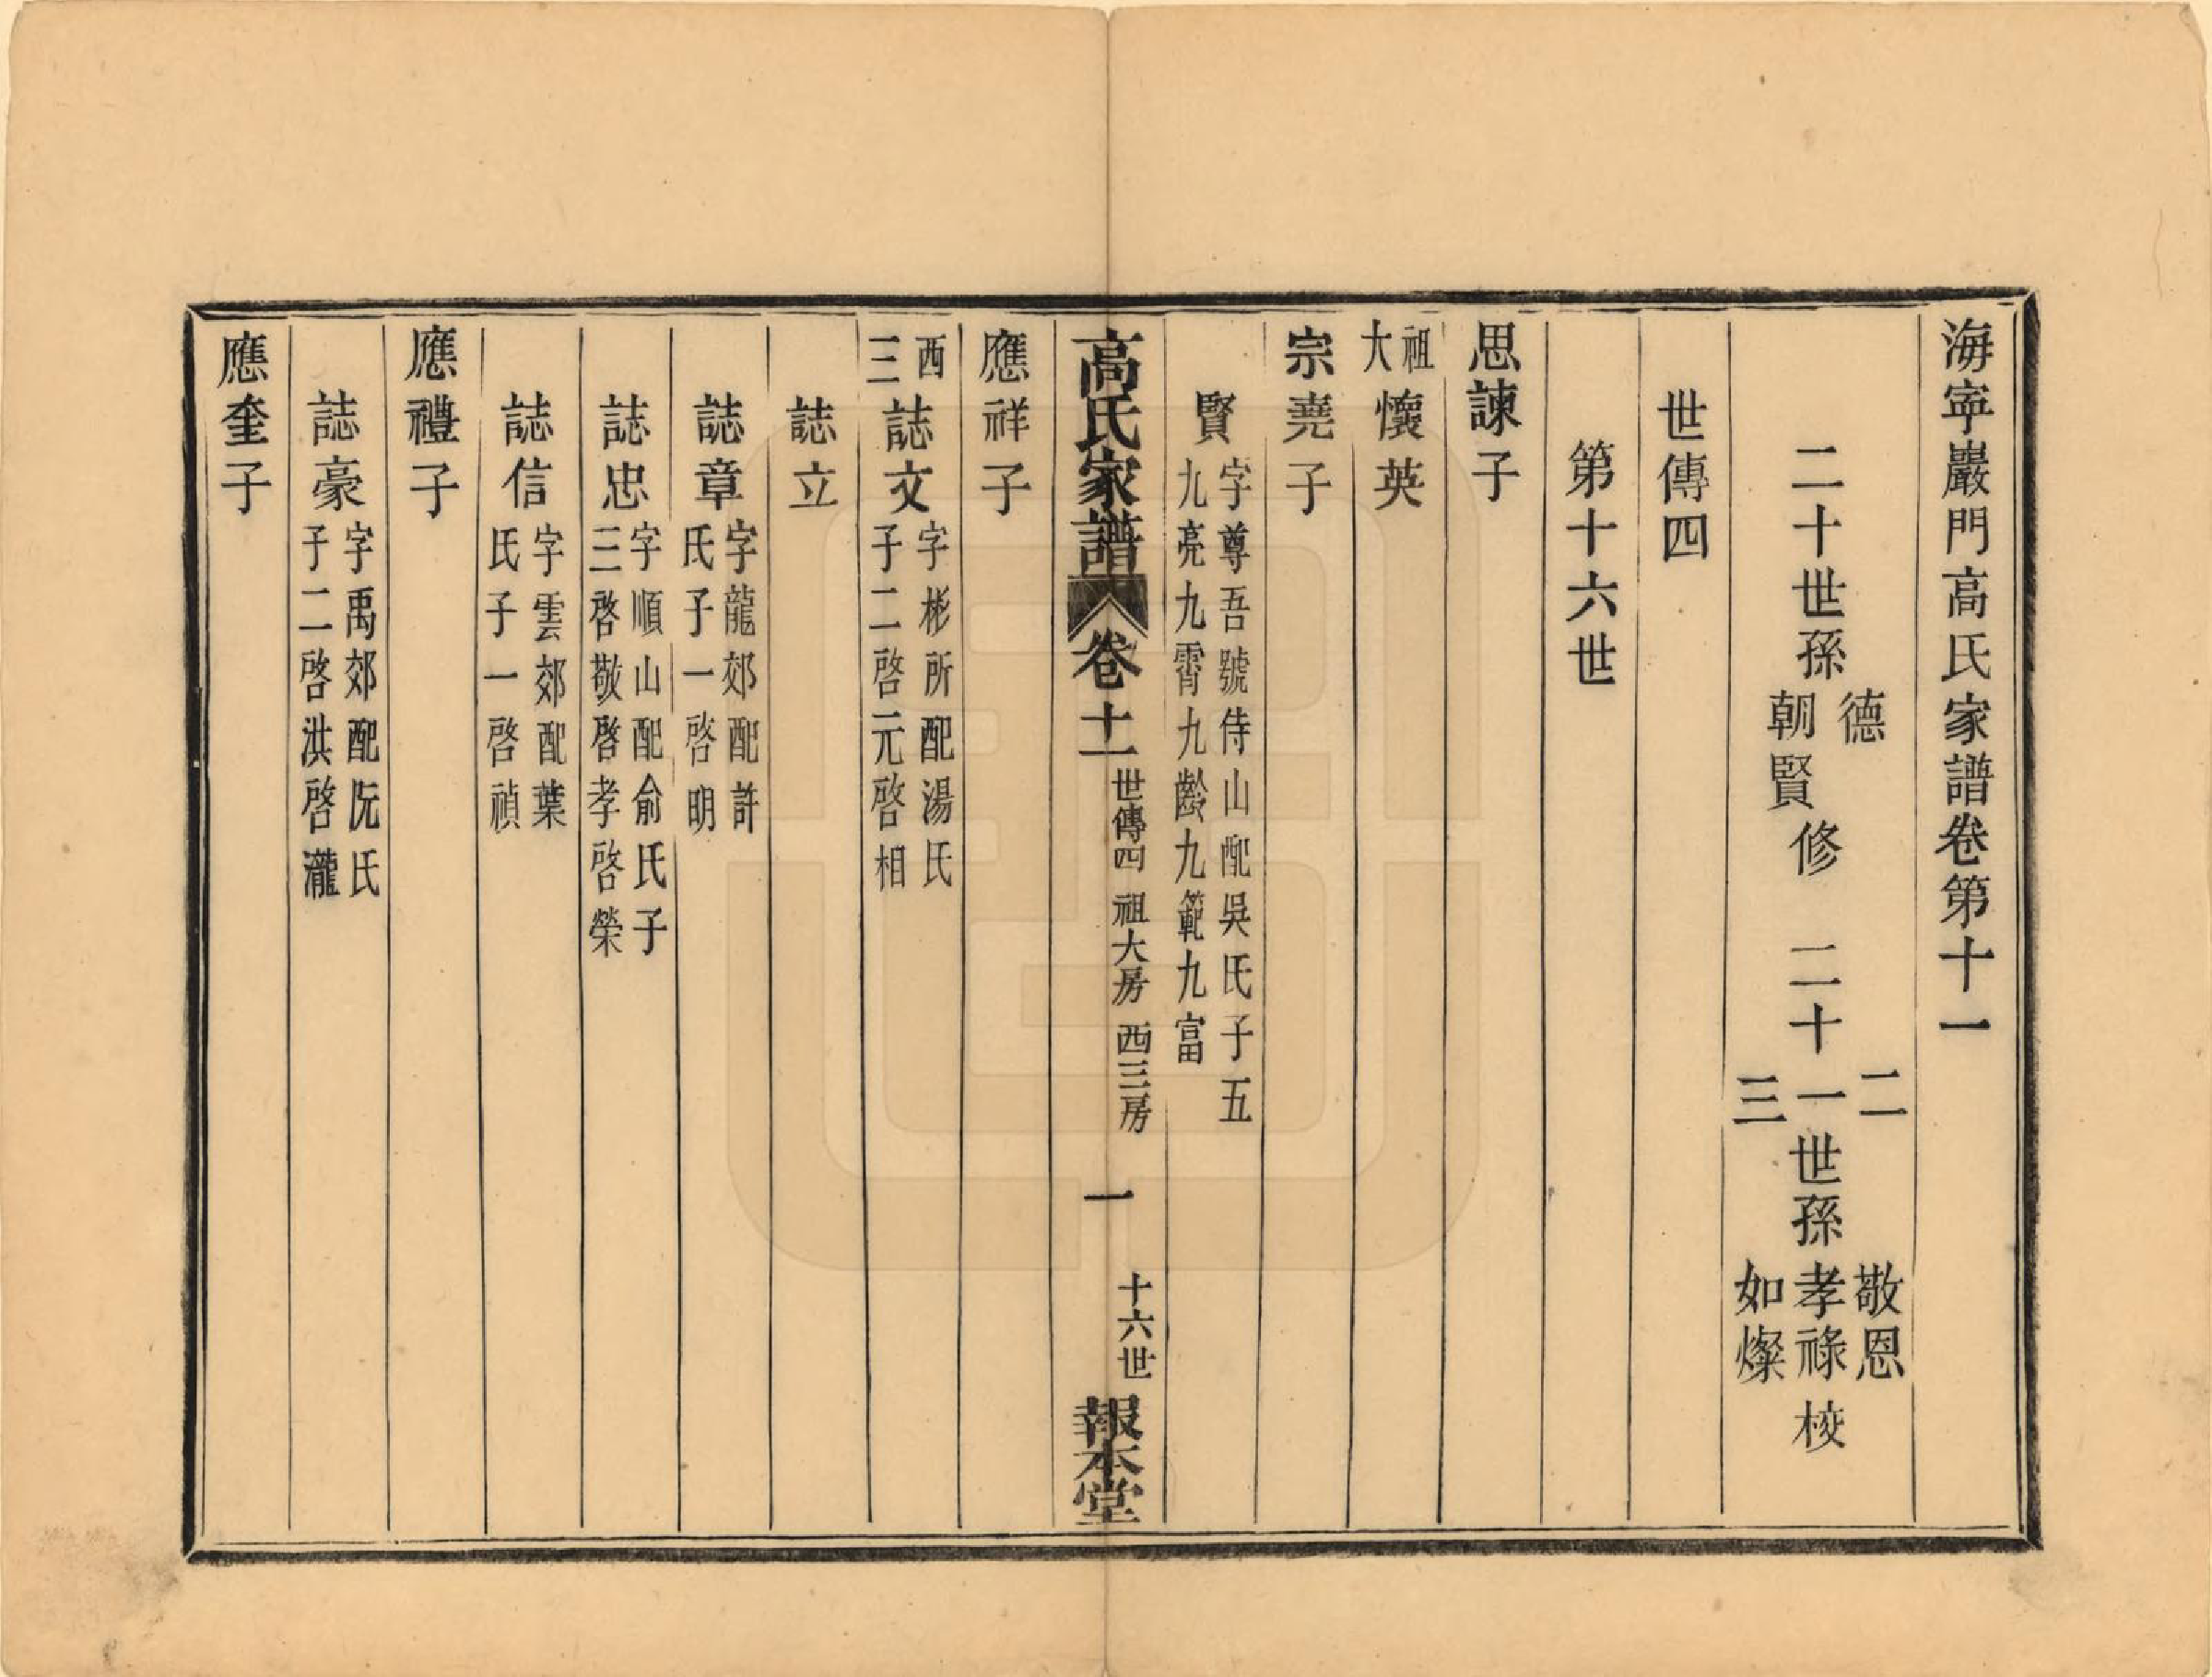 海寧巖門高氏家譜卷第十一
二十世孫德朝賢修 二十一二三世孫敬恩孝祿如燦校
世傳四
第十六世
思諫子
祖大 懷英
宗堯子
賢 字尊吾號侍山配吳氏子五
九亮九霄九齡九範九富
高氏家譜 卷十一 世傳四 祖大房 西三房 一 十六世 報本堂
應祥子
西三 誌文 字彬所配湯氏
子二啓元啓相
誌立
誌章 字龍郊配許
氏子一啓明
誌忠 字順山配俞氏子
三啓敬啓孝啓榮
誌信 字雲郊配葉
氏子一啓禎
應禮子
誌豪 字禹郊配阮氏
子二啓洪啓瀧
應奎子